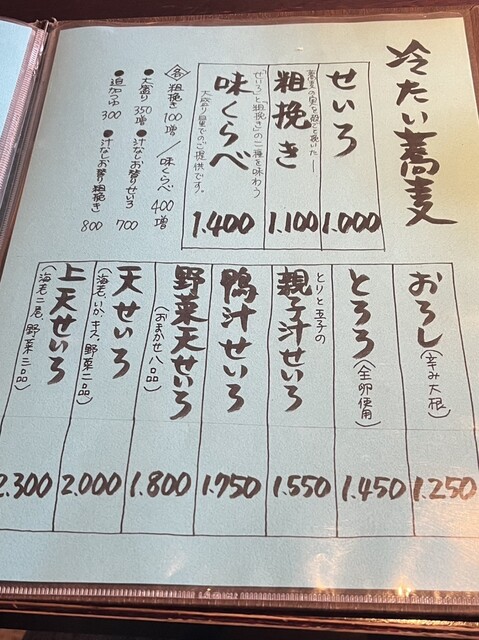 冷たい蕎麦
せいろ
1.000
蕎麦の実を殻ごと挽いた
粗挽き
1.100
味くらべ
「せいろ」と「粗挽き」の二種を味わう
大盛り量でのご提供です。
1.400
各 粗挽き 100増/味くらべ 400増
●大盛り 350増 ●汁なしお替りせいろ 700
●追加つゆ 300 ●汁なしお替り粗挽き 800
おろし(辛み大根)
1.250
とろろ(全卵使用)
1.450
とりと玉子の
親子汁せいろ
1.550
鴨汁せいろ
1.750
野菜天せいろ
(おまかせ八品)
1.800
天せいろ
(海老、いか、キス、野菜二品)
2.000
上天せいろ
(海老二尾、野菜三品)
2.300